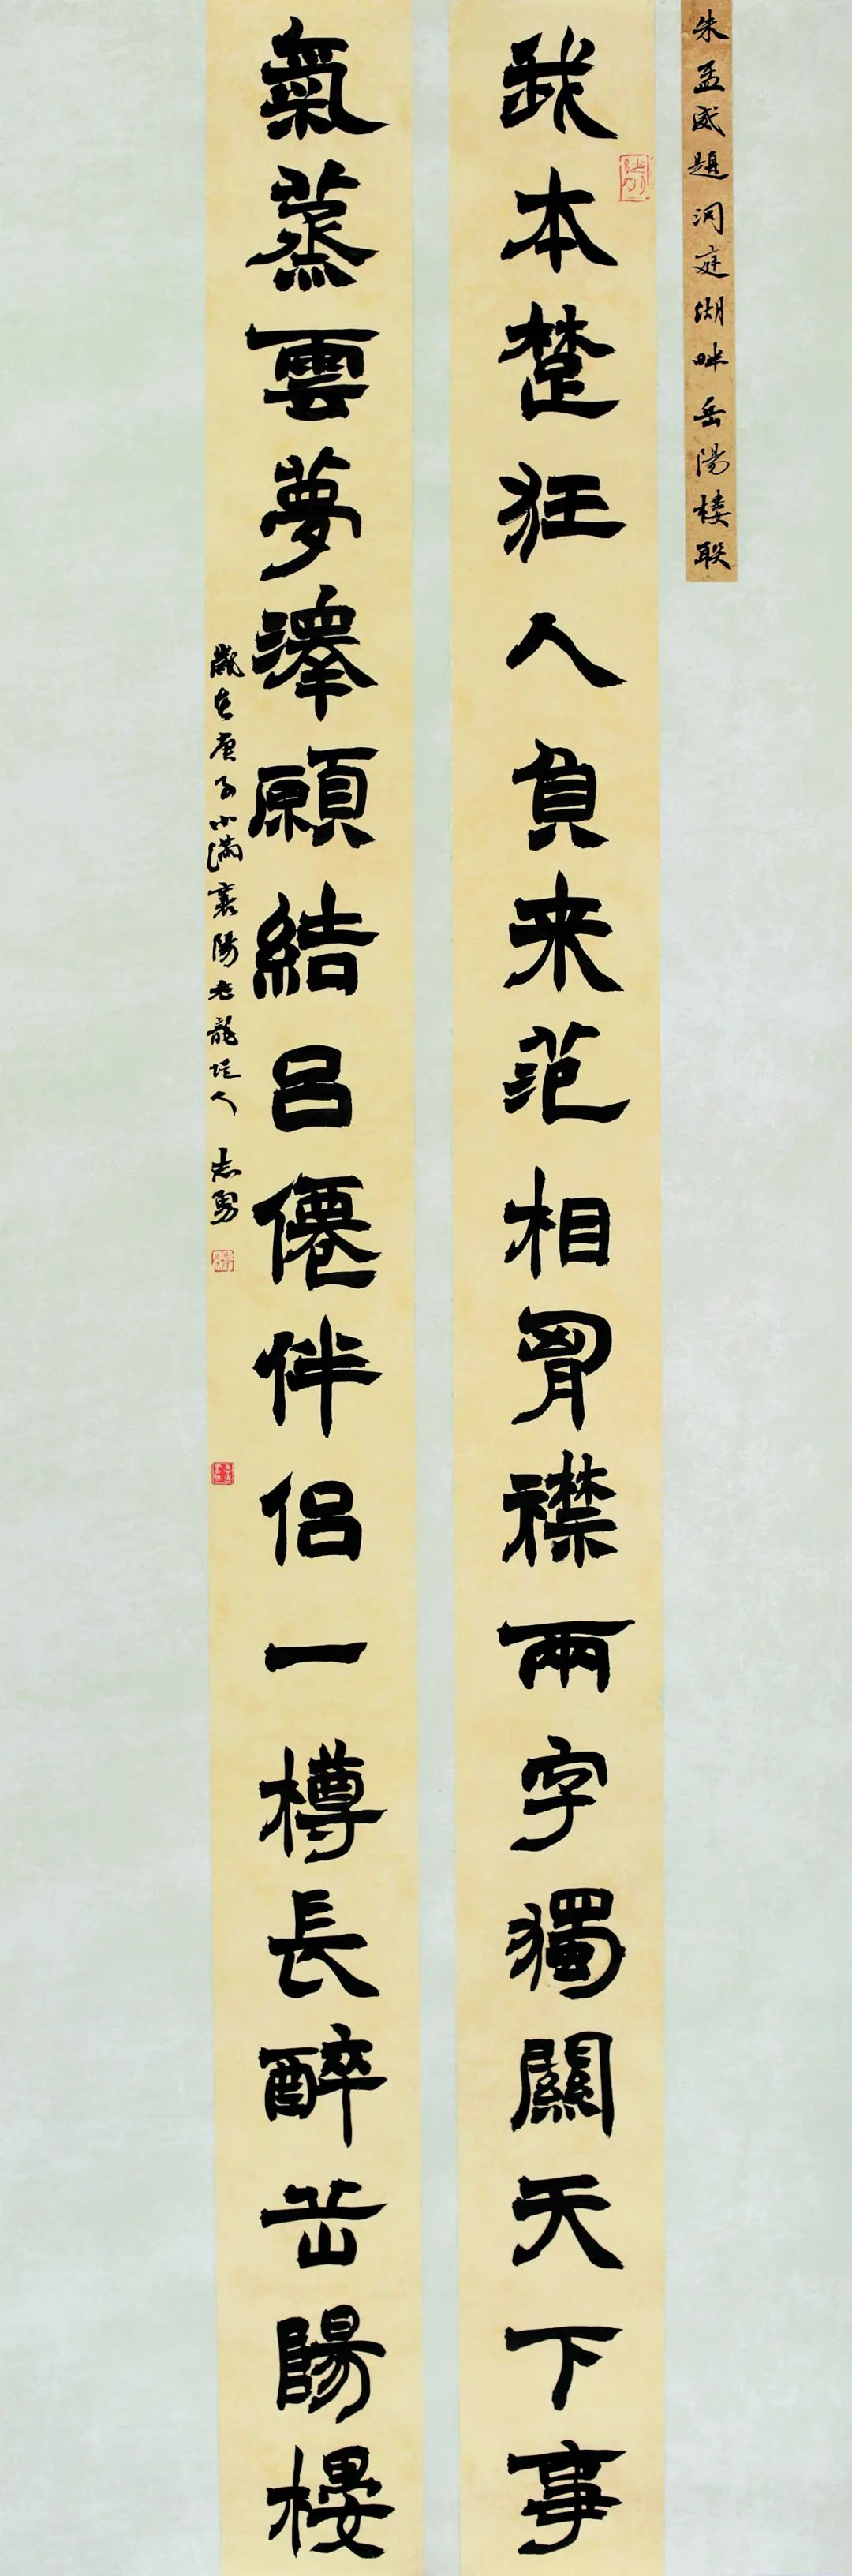 朱孟威題洞庭湖畔岳陽楼联
我本楚狂人負来范相胷襟兩字獨關天下事
氣蒸雲夢澤願結呂僊伴侣一樽長醉岳陽楼
歲在庚子小滿襄陽老龍堤人 志勇